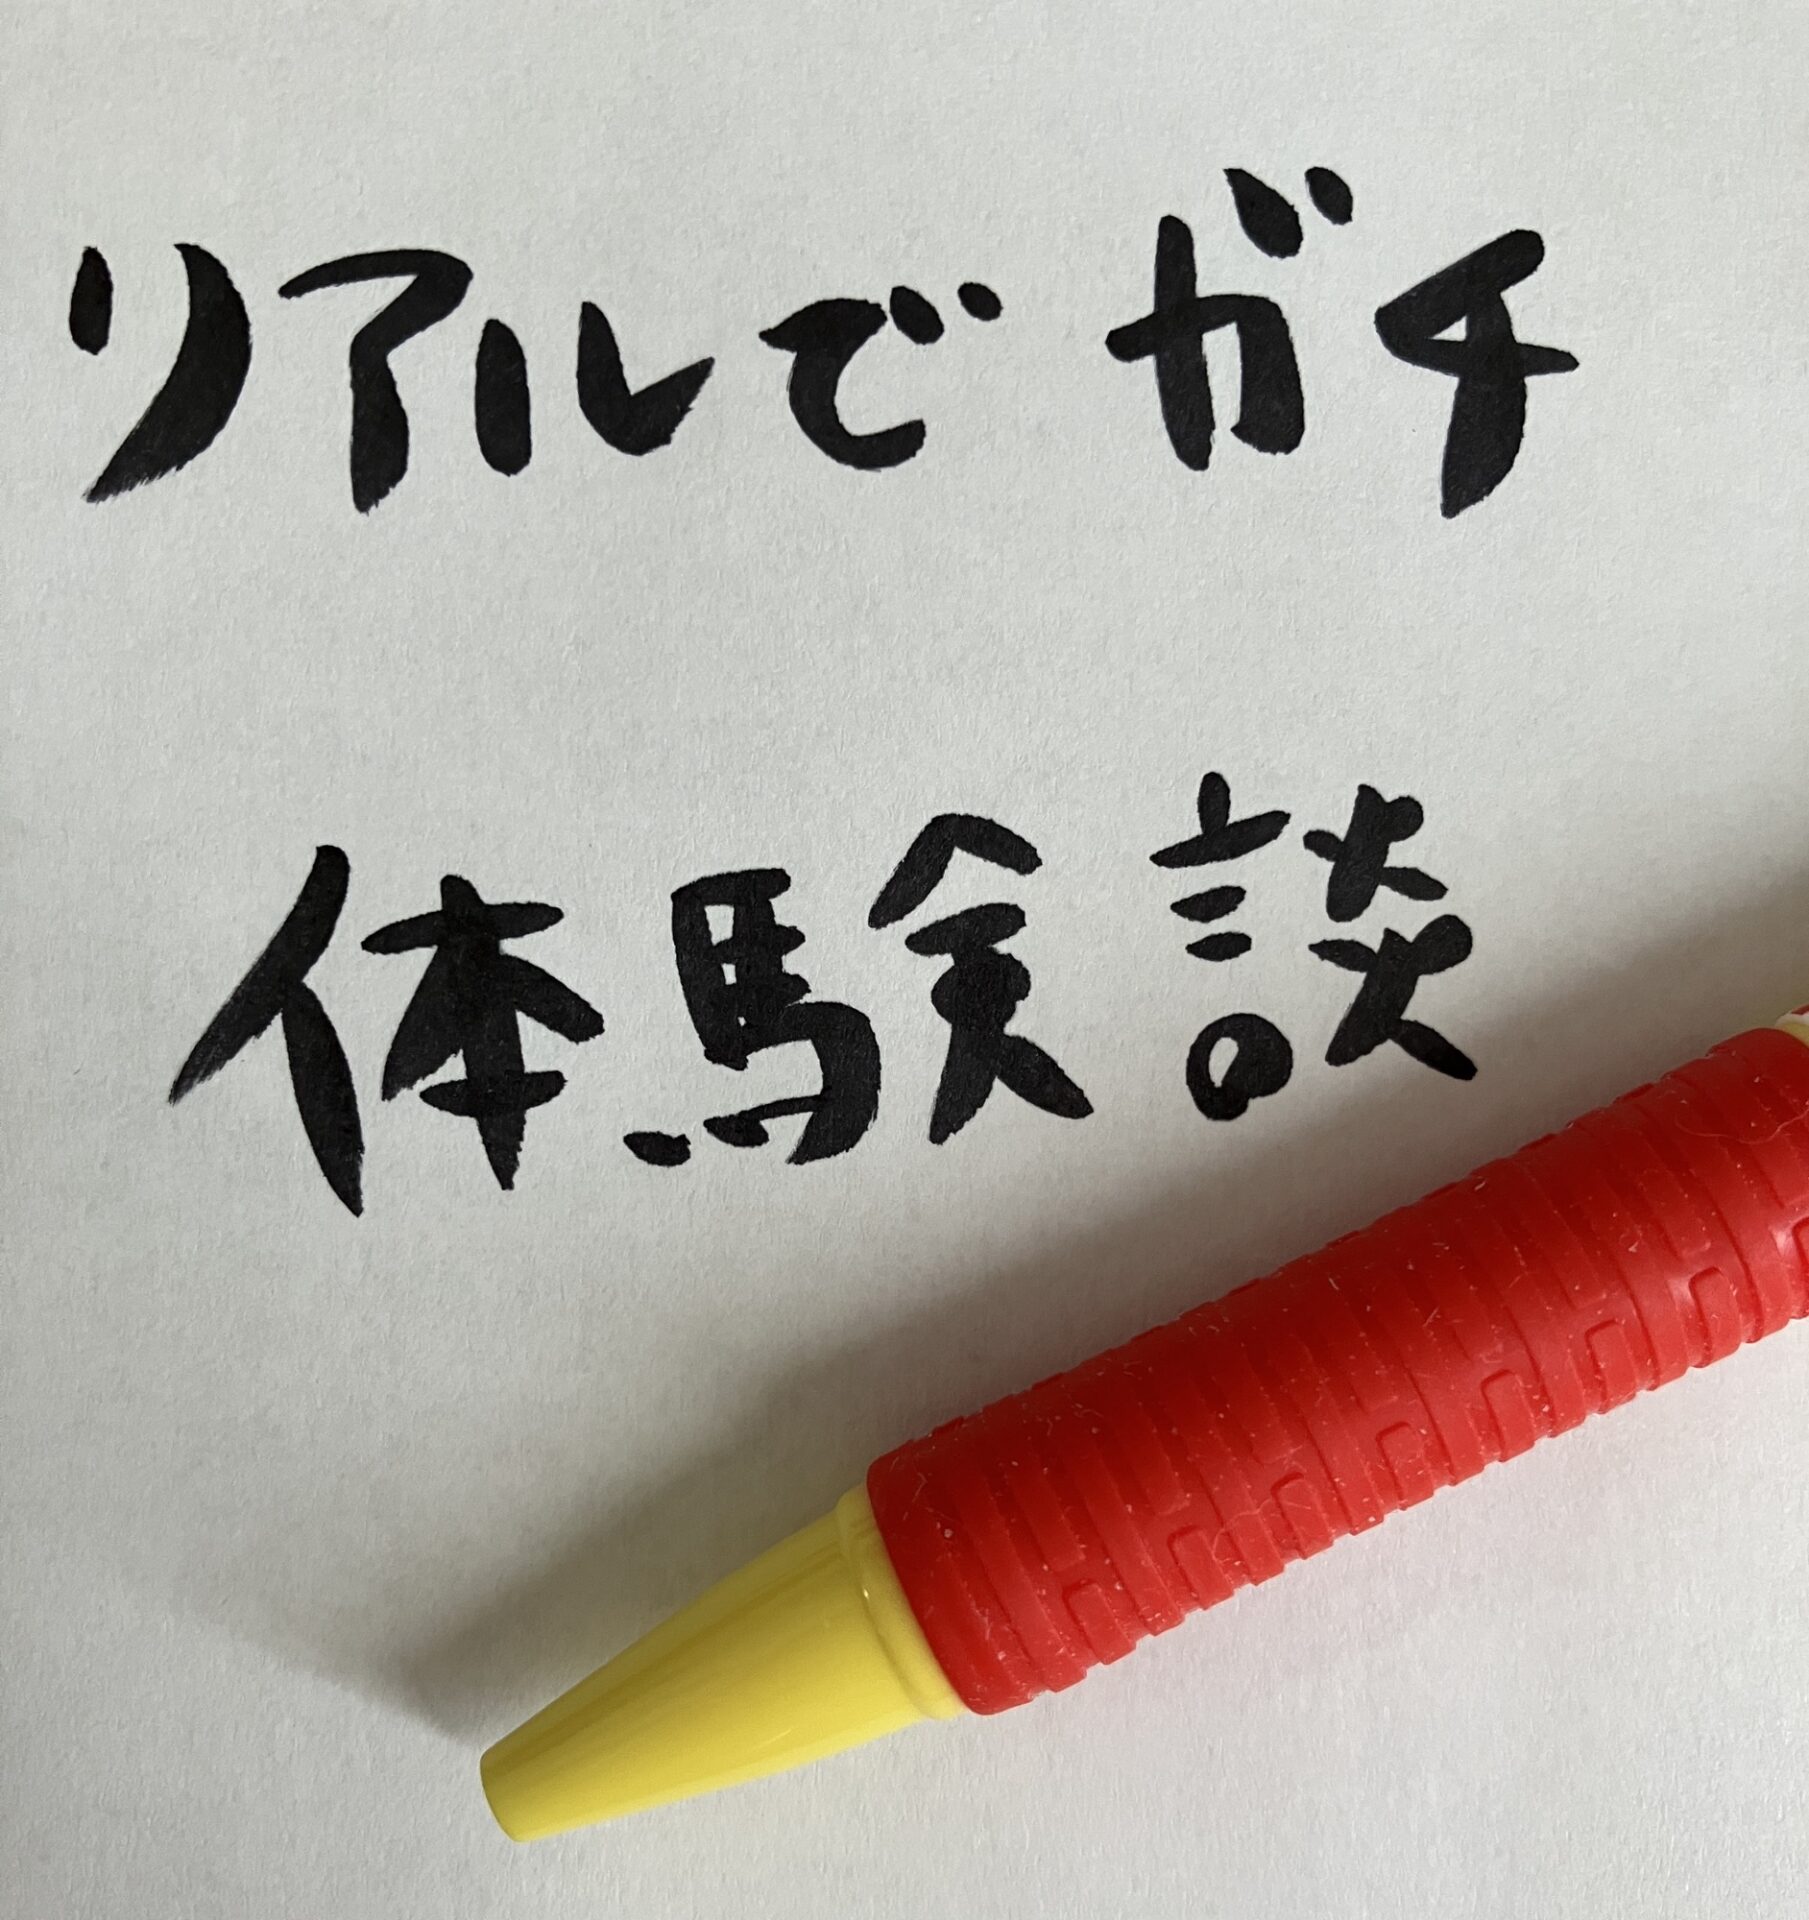 リアルでガチ
体験談